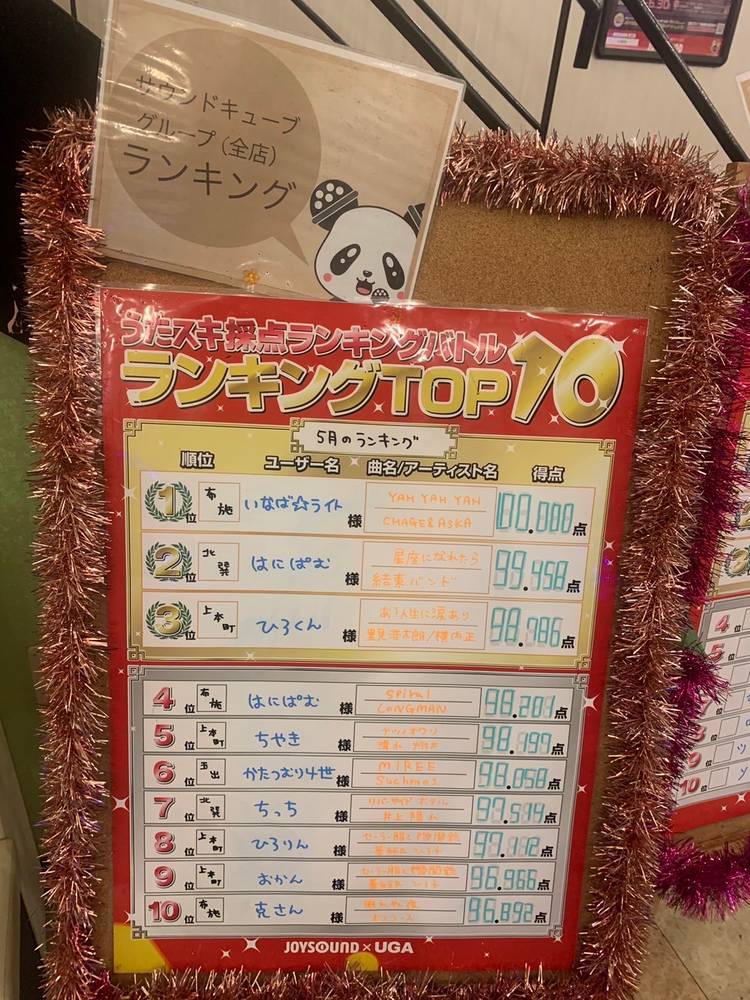 サウンドキューブ
グループ(全店)
ランキング
うたスキ採点ランキングバトル
ランキングTOP10
5月のランキング
順位 ユーザー名 曲名/アーティスト名 得点
1位 布施 いなば☆ライト様 YAH YAH YAH
CHAGE&ASKA 100.000点
2位 北巽 はにぱむ様 星座になれたら
結束バンド 99.458点
3位 上本町 ひろくん様 あゝ人生に涙あり
里見浩太朗/横内正 98.786点
4位 布施 はにぱむ様 spiral
LONGMAN 98.201点
5位 上本町 ちやき様 98.199点
6位 玉出 かたつむり4世様 MIREE
Suchmos 98.058点
7位 北巽 ちっち様 リバーサイド ホテル
井上陽水 97.514点
8位 上本町 ひろりん様 セーラー服と機関銃
97.112点
9位 上本町 おかん様 セーラー服と機関銃
96.966点
10位 布施 克さん様 96.892点
JOYSOUND×UGA
4
5
6
7
8
9
10